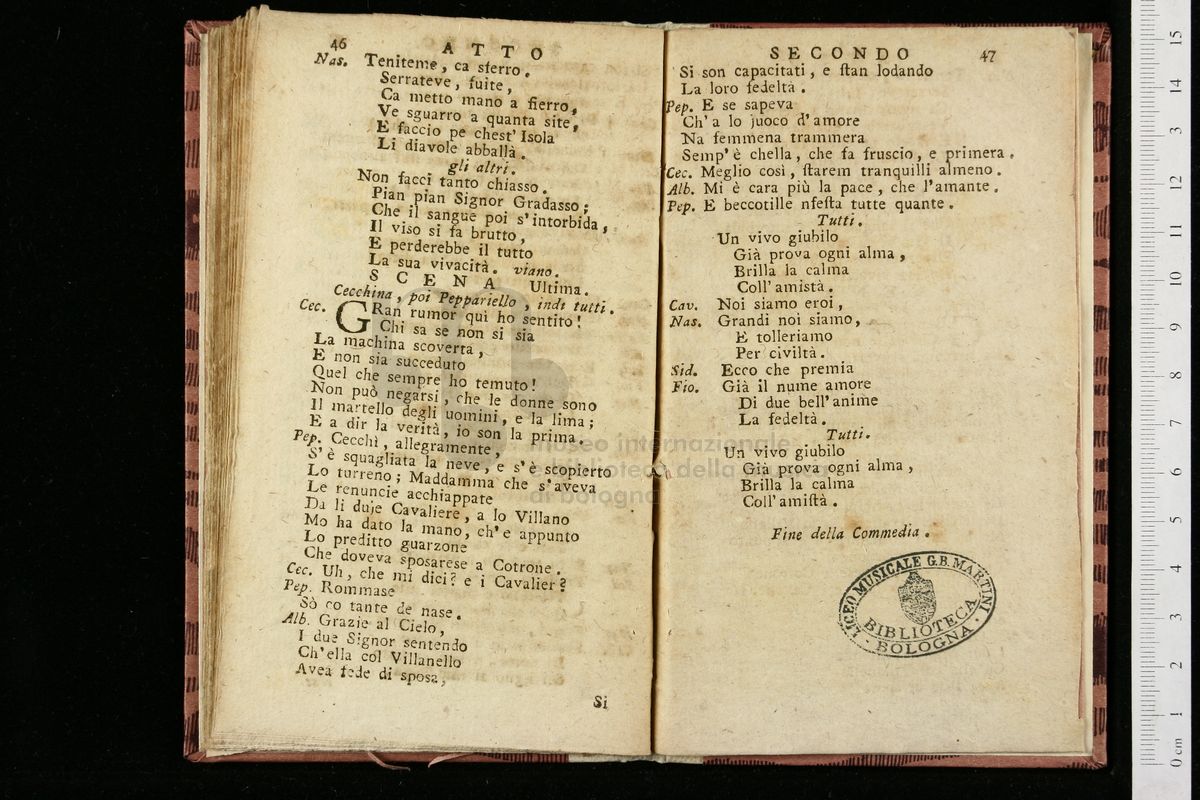 46 ATTO
Nas. Teniteme, ca sferro.
Serrateve, fuite,
Ca metto mano a fierro,
Ve sguarro a quanta site,
E faccio pe chest' Isola
Li diavole abballà.
gli altri.
Non facci tanto chiasso.
Pian pian Signor Gradasso;
Che il sangue poi s'intorbida,
Il viso si fa brutto,
E perderebbe il tutto
La sua vivacità. viano.
SCENA Ultima.
Cecchina, poi Peppariello, indi tutti.
Cec. GRan rumor quì ho sentito!
Chi sa se non si sia
La machina scoverta,
E non sia succeduto
Quel che sempre ho temuto!
Non può negarsi, che le donne sono
Il martello degli uomini, e la lima;
E a dir la verità, io son la prima.
Pep. Cecchì, allegramente,
S'è squagliata la neve, e s'è scopierto
Lo turreno; Maddamma che s'aveva
Le renuncie acchiappate
Da li duje Cavaliere, a lo Villano
Mo ha dato la mano, ch'e appunto
Lo preditto guarzone
Che doveva sposarese a Cotrone.
Cec. Uh, che mi dici? e i Cavalier?
Pep. Rommase
Sò co tante de nase.
Alb. Grazie al Cielo,
I due Signor sentendo
Ch'ella col Villanello
Avea fede di sposa,
Si
SECONDO 47
Si son capacitati, e ſtan lodando
La loro fedeltà.
Pep. E se sapeva
Ch'a lo juoco d'amore
Na femmena trammera
Semp'è chella, che fa fruscio, e primera.
Cec. Meglio così, ſtarem tranquilli almeno.
Alb. Mi è cara più la pace, che l'amante.
Pep. E beccotille nfeſta tutte quante.
Tutti.
Un vivo giubilo
Già prova ogni alma,
Brilla la calma
Coll'amistà.
Cav. Noi siamo eroi,
Nas. Grandi noi siamo,
E tolleriamo
Per civiltà.
Sid. Ecco che premia
Fio. Già il nume amore
Di due bell'anime
La fedeltà.
Tutti.
Un vivo giubilo
Già prova ogni alma,
Brilla la calma
Coll'amiſtà.
Fine della Commedia.
LICEO MUSICALE G.B. MARTINI
BIBLIOTECA
BOLOGNA
museo internazionale
e biblioteca della musica
di bologna
0 cm 1 2 3 4 5 6 7 8 9 10 11 12 13 14 15